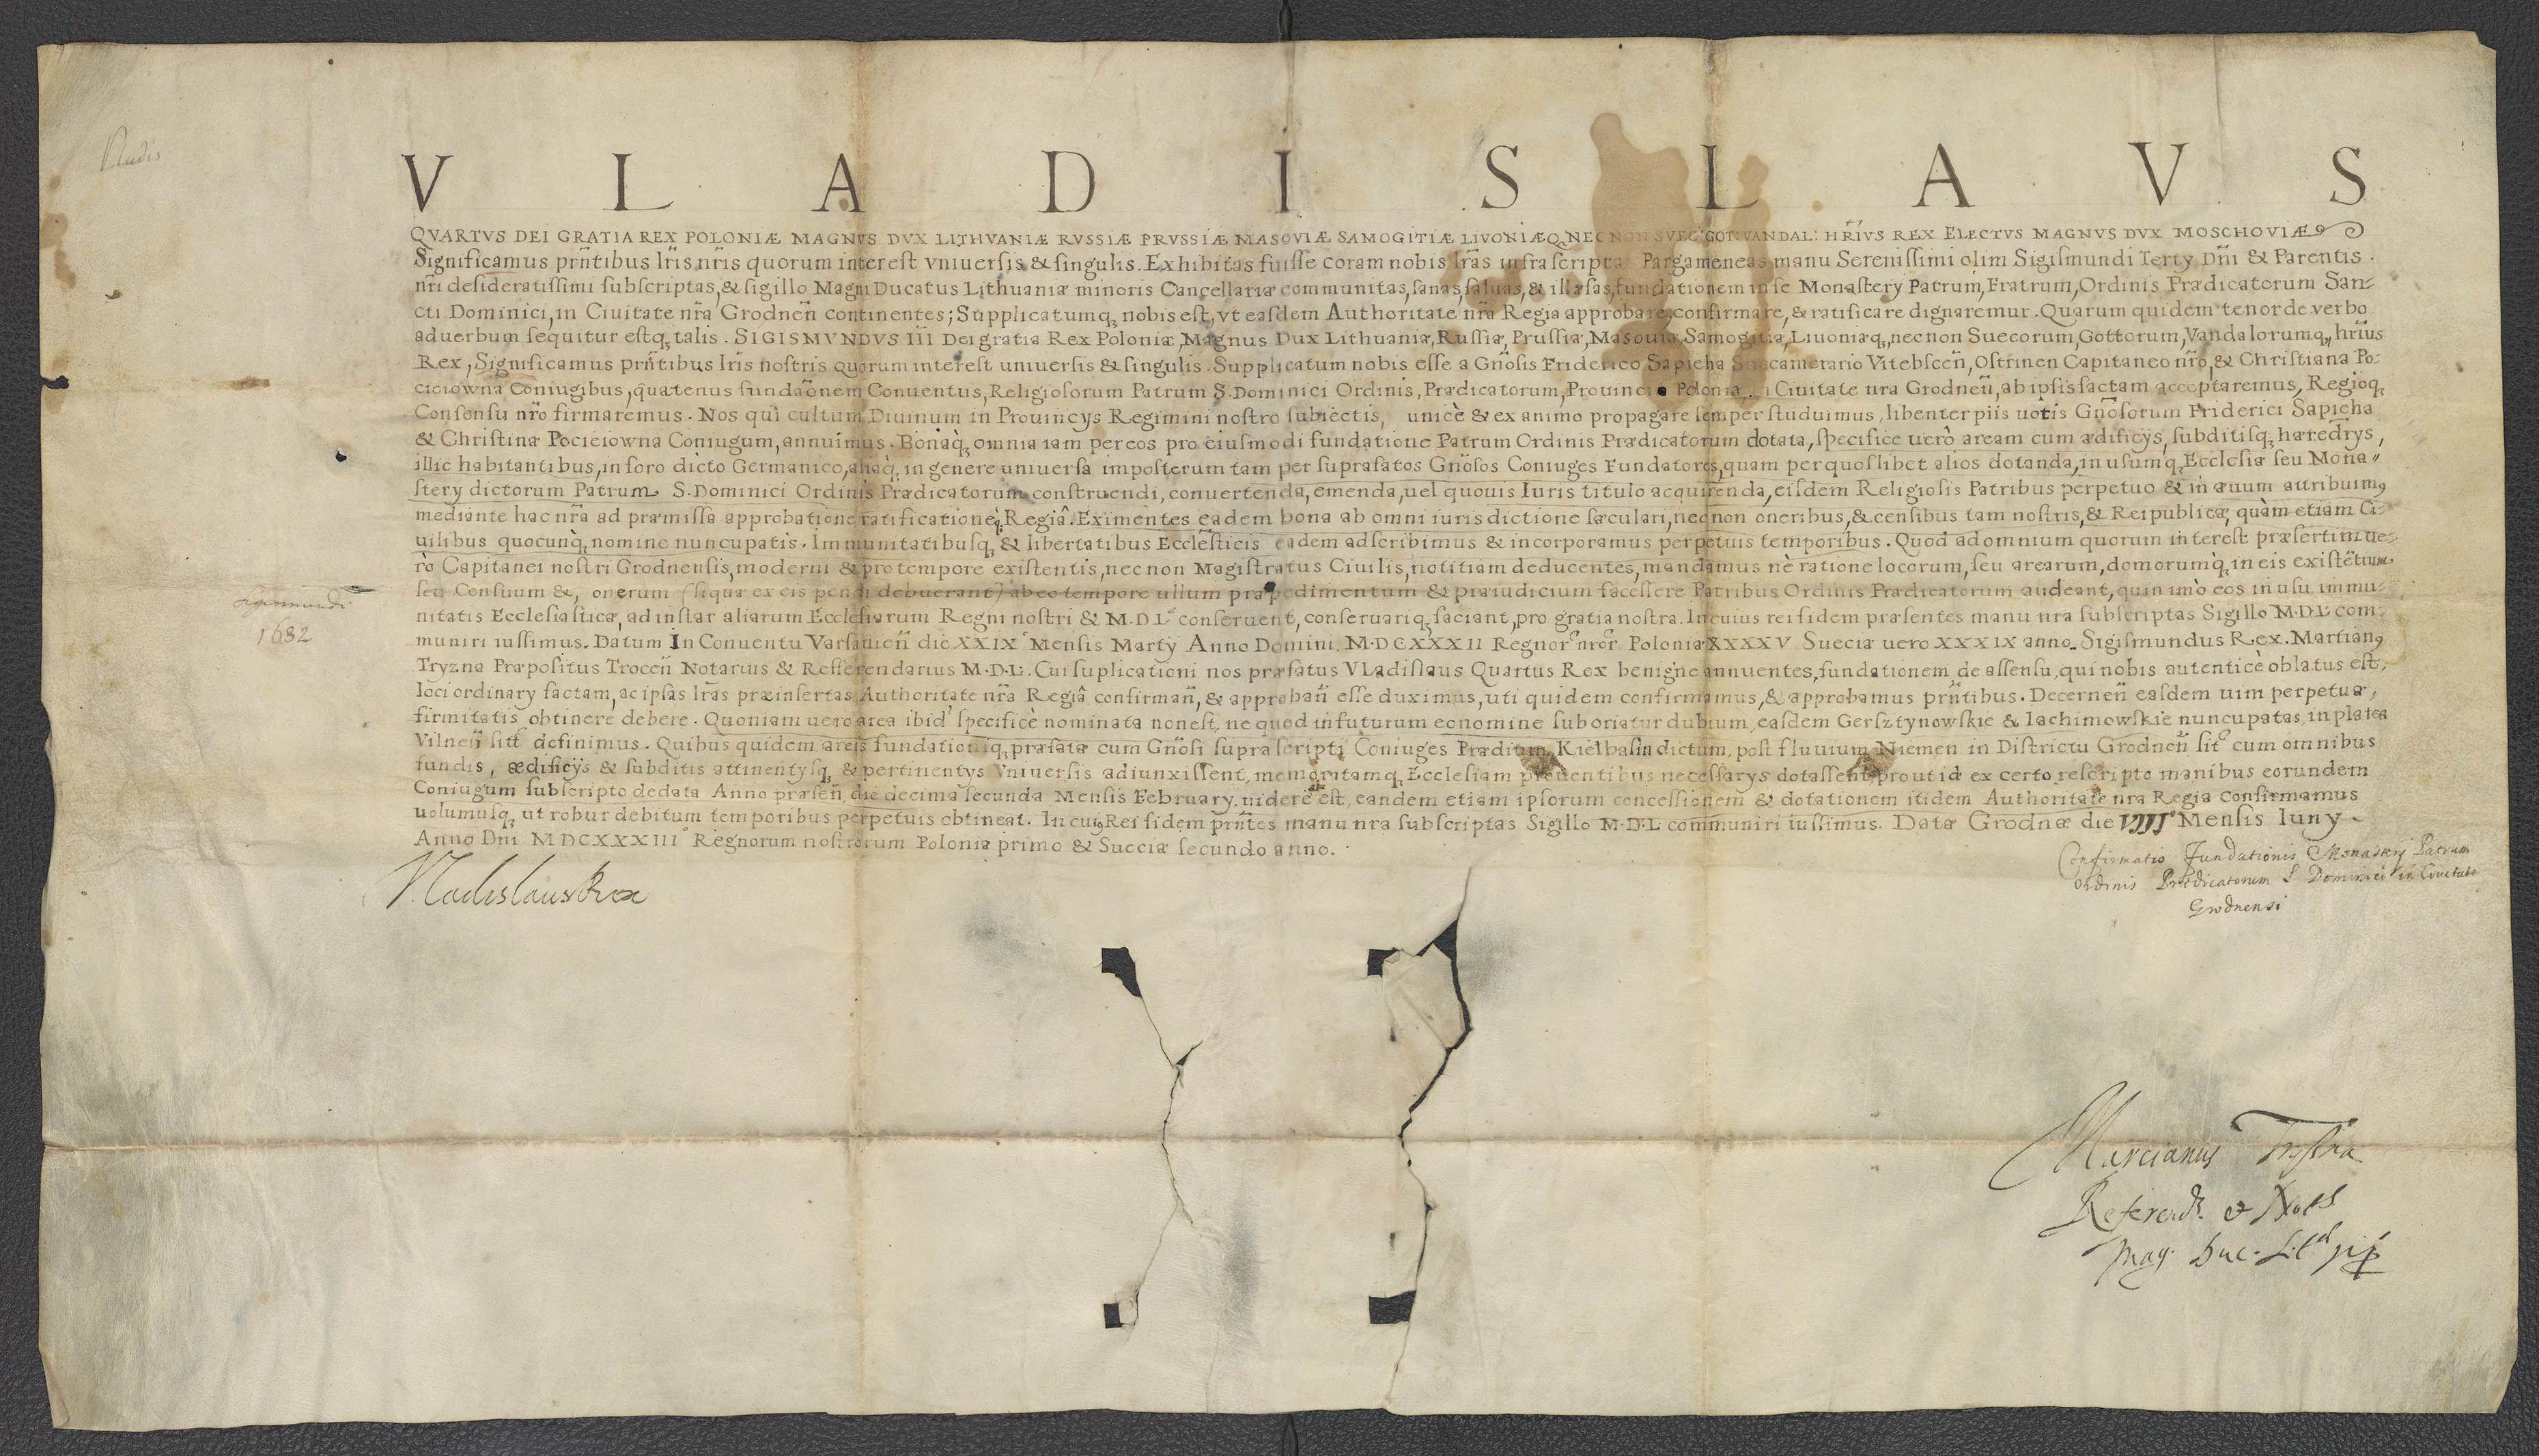 VLADISLAVS
QVARTVS DEI GRATIA REX POLONIÆ MAGNVS DVX LITHVANIÆ RVSSIÆ PRVSSIÆ MASOVIÆ SAMOGITIÆ LIVONIÆQ, NEC NON SVEC: GOT: VANDAL: HRĪVS REX ELECTVS MAGNVS DVX MOSCHOVIÆ
Significamus prn̄tibus lr̄is nr̄is quorum interest vniuersis & singulis. Exhibitas fuisse coram nobis lr̄as infrascriptas Pargameneas manu Serenissimi olim Sigismundi Terty Dn̄i & Parentis
nr̄i desideratissimi subscriptas, & sigillo Magni Ducatus Lithuaniæ minoris Cancellariæ communitas, sanas, saluas, & illæsas, fundationem in se Monastery Patrum, Fratrum, Ordinis Prædicatorum San-
cti Dominici, in Ciuitate nr̄a Grodnen̄ continentes; Supplicatumq, nobis est, vt easdem Authoritate nr̄a Regia approbare, confirmare, & ratificare dignaremur. Quarum quidem tenor de verbo
ad uerbum sequitur estq, talis. SIGISMVNDVS III Dei gratia Rex Poloniæ, Magnus Dux Lithuaniæ, Russiæ, Prussiæ, Masouiæ, Samogitiæ, Liuoniæq, nec non Suecorum, Gottorum, Vandalorumq, hrīus
Rex, Significamus prn̄tibus lr̄is nostris quorum interest uniuersis & singulis. Supplicatum nobis esse a Gn̄osis Friderico Sapieha Succamerario Vitebscen̄, Ostrinen Capitaneo nr̄o, & Christiana Po-
cieiowna Coniugibus, quatenus fundaōnem Conuentus, Religiosorum Patrum S. Dominici Ordinis, Prædicatorum, Prouinciæ Poloniæ, in Ciuitate nra Grodnen̄, ab ipsis factam acceptaremus, Regioq,
Consensu nr̄o firmaremus. Nos qui cultum Diuinum in Prouincijs Regimini nostro subiectis, unicè & ex animo propagare semper studuimus, libenter piis uotis Gn̄osorum Friderici Sapieha
& Christinæ Pocieiowna Coniugum, annuimus. Bonaq, omnia iam per eos pro eiusmodi fundatione Patrum Ordinis Prædicatorum dotata, specifice uerò aream cum ædificijs, subditisq, hæredrys,
illic habitantibus, in foro dicto Germanico, aliaq, in genere uniuersa imposterum tam per suprafatos Gn̄osos Coniuges Fundatores, quam per quoslibet alios dotanda, in usumq, Ecclesiæ seu Mona-
stery dictorum Patrum S. Dominici Ordinis Prædicatorum construendi, conuertenda, emenda, uel quouis Iuris titulo acquirenda, eisdem Religiosis Patribus perpetuo & in æuum attribuimꝰ
mediante hac nr̄a ad præmissa approbatione ratificationeq, Regiâ. Eximentes eadem bona ab omni iurisdictione sæculari, nec non oneribus, & censibus tam nostris, & Reipublicæ, quàm etiam Ci-
uilibus quocunq, nomine nuncupatis. Immunitatibusq, & libertatibus Ecclesticis eadem adscribimus & incorporamus perpetuis temporibus. Quod ad omnium quorum interest præsertim ue-
rò Capitanei nostri Grodnensis, moderni & pro tempore existentis, nec non Magistratus Ciuilis, notitiam deducentes, mandamus nè ratione locorum, seu arearum, domorumq, in eis existētium
seu Censuum &, onerum (siqua ex eis pendi debuerant) ab eo tempore ullum præpedimentum & præiudicium facessere Patribus Ordinis Prædicatorum audeant, quin imò eos in usu immu-
nitatis Ecclesiasticæ, ad instar aliarum Ecclesiarum Regni nostri & M.D.L. conseruent, conseruariq, faciant, pro gratia nostra. In cuius rei fidem præsentes manu nra subscriptas Sigillo M.D.L. com-
muniri iussimus. Datum In Conuentu Varsauien̄ die XXIX Mensis Marty Anno Domini M.DCXXXII Regnor nror Poloniæ XXXXV Sueciæ uero XXXIX anno. Sigismundus Rex. Martianꝰ
Tryzna Præpositus Trocen̄ Notarius & Refferendarius M.D.L. Cui suplicationi nos præfatus VLadislaus Quartus Rex benigne annuentes, fundationem de assensu, qui nobis autenticè oblatus est,
loci ordinary factam, ac ipsas lr̄as præinsertas Authoritate nr̄a Regiâ confirman̄, & approban̄ esse duximus, uti quidem confirmamus, & approbamus prn̄tibus. Decernen̄ easdem uim perpetuæ
firmitatis obtinere debere. Quoniam uero area ibid specificè nominata non est, ne quod in futurum eo nomine suboriatur dubium, easdem Gersztynowskie & Iachimowskie nuncupatas, in platea
Vilnen̄ sitt definimus. Quibus quidem areis fundationiq, præfatæ cum Gn̄osi supra scripti Coniuges Prædium Kiełbasin dictum, post fluuium Niemen in Districtu Grodnen̄ sit cum omnibus
fundis, ædificijs & subditis attinentysq, & pertinentys Vniuersis adiunxissent, memoratamq, Ecclesiam prouentibus necessarys dotassent, prout id ex certo rescripto manibus eorundem
Coniugum subscripto de data Anno præsen̄, die decima secunda Mensis February uidere est, eandem etiam ipsorum concessionem & dotationem itidem Authoritate nra Regia Confirmamus
uolumusq, ut robur debitum temporibus perpetuis obtineat. In cuiꝰ Rei fidem prn̄tes manu nra subscriptas Sigillo M.D.L communiri iussimus. Datæ Grodnæ die VIII Mensis Iuny
Anno Dni MDCXXXIII Regnorum nostrorum Poloniæ primo & Sueciæ secundo anno.
Vladislaus Rex
Confirmatio Fundationis Monastery Patrum
Ordinis Prædicatorum S Dominici in Civitate
Grodnensi
Sigismundi
1632
Marcianus Tryzna
Referend. & Not
Mag. Duc. Lit